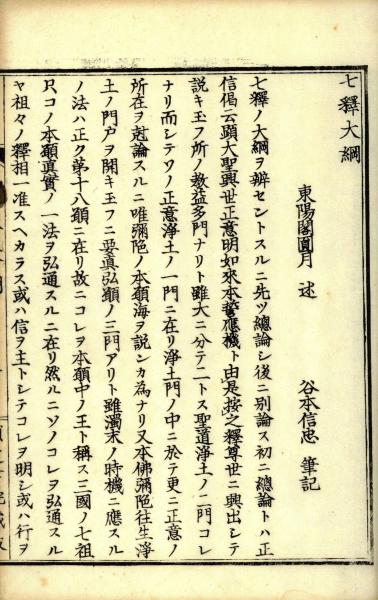 七釋大綱
東陽閣圓月 述　谷本信忠 筆記
七釋ノ大綱ヲ辨セントスルニ先ツ總論シ後ニ別論ス初ニ總論トハ正
信偈云顯大聖興世正意明如來本誓應機ト由是按之釋尊世ニ興出シテ
説キ玉フ所ノ教益多門ナリト雖大ニ分テ二トス聖道淨土ノ二門コレ
ナリ而シテソノ正意淨土ノ一門ニ在リ淨土門ノ中ニ於テ更ニ正意ノ
所在ヲ尅論スルニ唯彌陀ノ本願海ヲ説ンカ為ナリ又本佛彌陀往生淨
土ノ門戸ヲ開キ玉フニ要真弘願ノ三門アリト雖濁末ノ時機ニ應スル
ノ法ハ正ク第十八願ニ在リ故ニコレヲ本願中ノ王ト稱ス三國ノ七祖
只コノ本願真實ノ一法ヲ弘通スルニ在リ然ルニソノコレヲ弘通スル
ヤ祖々ノ釋相一准スヘカラス或ハ信ヲ主トシテコレヲ明シ或ハ行ヲ